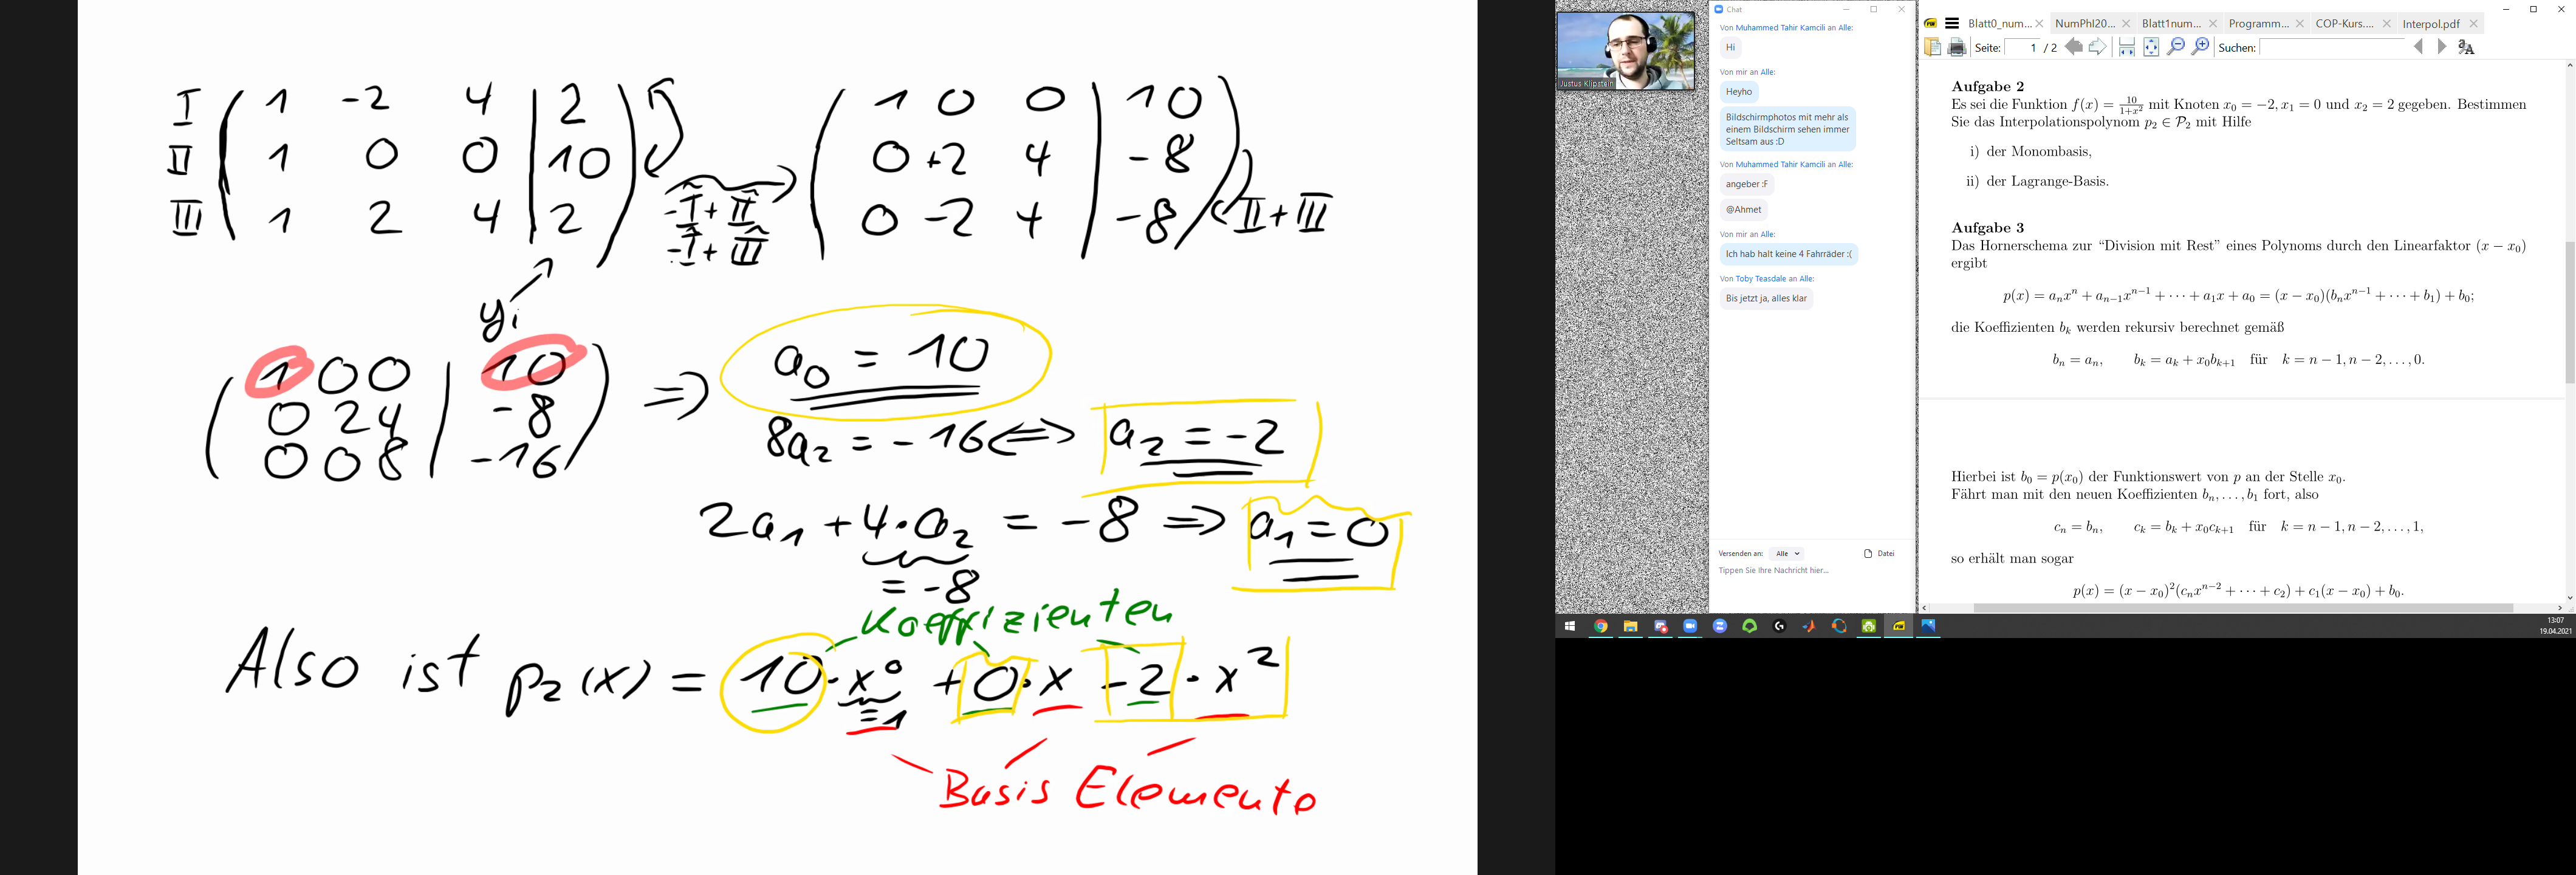 I ( 1 -2 4 | 2 )
II ( 1 0 0 | 10 )
III ( 1 2 4 | 2 )
-Î + ÎI
-Î + ÎII
( 1 0 0 | 10 )
( 0 +2 4 | -8 )
( 0 -2 4 | -8 ) II + III
yᵢ
( 1 0 0 | 10 )
( 0 2 4 | -8 )
( 0 0 8 | -16 )
⇒ a₀ = 10
8a₂ = -16 ⇔ a₂ = -2
2a₁ + 4·a₂ = -8 ⇒ a₁ = 0
= -8
Koeffizienten
Also ist p₂(x) = 10·x⁰ + 0·x -2·x²
=1
Basis Elemente
Justus Klipstein
Chat
Von Muhammed Tahir Kamcili an Alle:
Hi
Von mir an Alle:
Heyho
Bildschirmphotos mit mehr als
einem Bildschirm sehen immer
Seltsam aus :D
Von Muhammed Tahir Kamcili an Alle:
angeber :F
@Ahmet
Von mir an Alle:
Ich hab halt keine 4 Fahrräder :(
Von Toby Teasdale an Alle:
Bis jetzt ja, alles klar
Versenden an: Alle Datei
Tippen Sie Ihre Nachricht hier...
Blatt0_num... NumPhI20... Blatt1num... Programm... COP-Kurs.... Interpol.pdf
Seite: 1 / 2 Suchen:
Aufgabe 2
Es sei die Funktion f(x) = 10/(1+x²) mit Knoten x₀ = −2, x₁ = 0 und x₂ = 2 gegeben. Bestimmen
Sie das Interpolationspolynom p₂ ∈ 𝒫₂ mit Hilfe
i) der Monombasis,
ii) der Lagrange-Basis.
Aufgabe 3
Das Hornerschema zur “Division mit Rest” eines Polynoms durch den Linearfaktor (x − x₀)
ergibt
p(x) = aₙxⁿ + aₙ₋₁xⁿ⁻¹ + ⋯ + a₁x + a₀ = (x − x₀)(bₙxⁿ⁻¹ + ⋯ + b₁) + b₀;
die Koeffizienten bₖ werden rekursiv berechnet gemäß
bₙ = aₙ, bₖ = aₖ + x₀bₖ₊₁ für k = n − 1, n − 2, . . . , 0.
Hierbei ist b₀ = p(x₀) der Funktionswert von p an der Stelle x₀.
Fährt man mit den neuen Koeffizienten bₙ, . . . , b₁ fort, also
cₙ = bₙ, cₖ = bₖ + x₀cₖ₊₁ für k = n − 1, n − 2, . . . , 1,
so erhält man sogar
p(x) = (x − x₀)²(cₙxⁿ⁻² + ⋯ + c₂) + c₁(x − x₀) + b₀.
13:07
19.04.2021